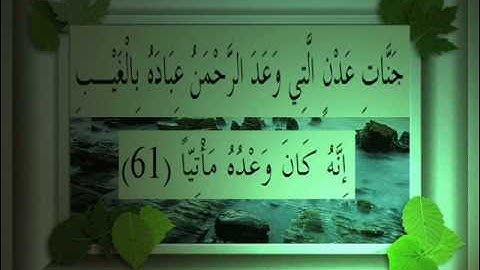 جَنَّاتِ عَدْنٍ الَّتِي وَعَدَ الرَّحْمَنُ عِبَادَهُ بِالْغَيْـــبِ
إِنَّهُ كَانَ وَعْدُهُ مَأْتِيّاً (61)